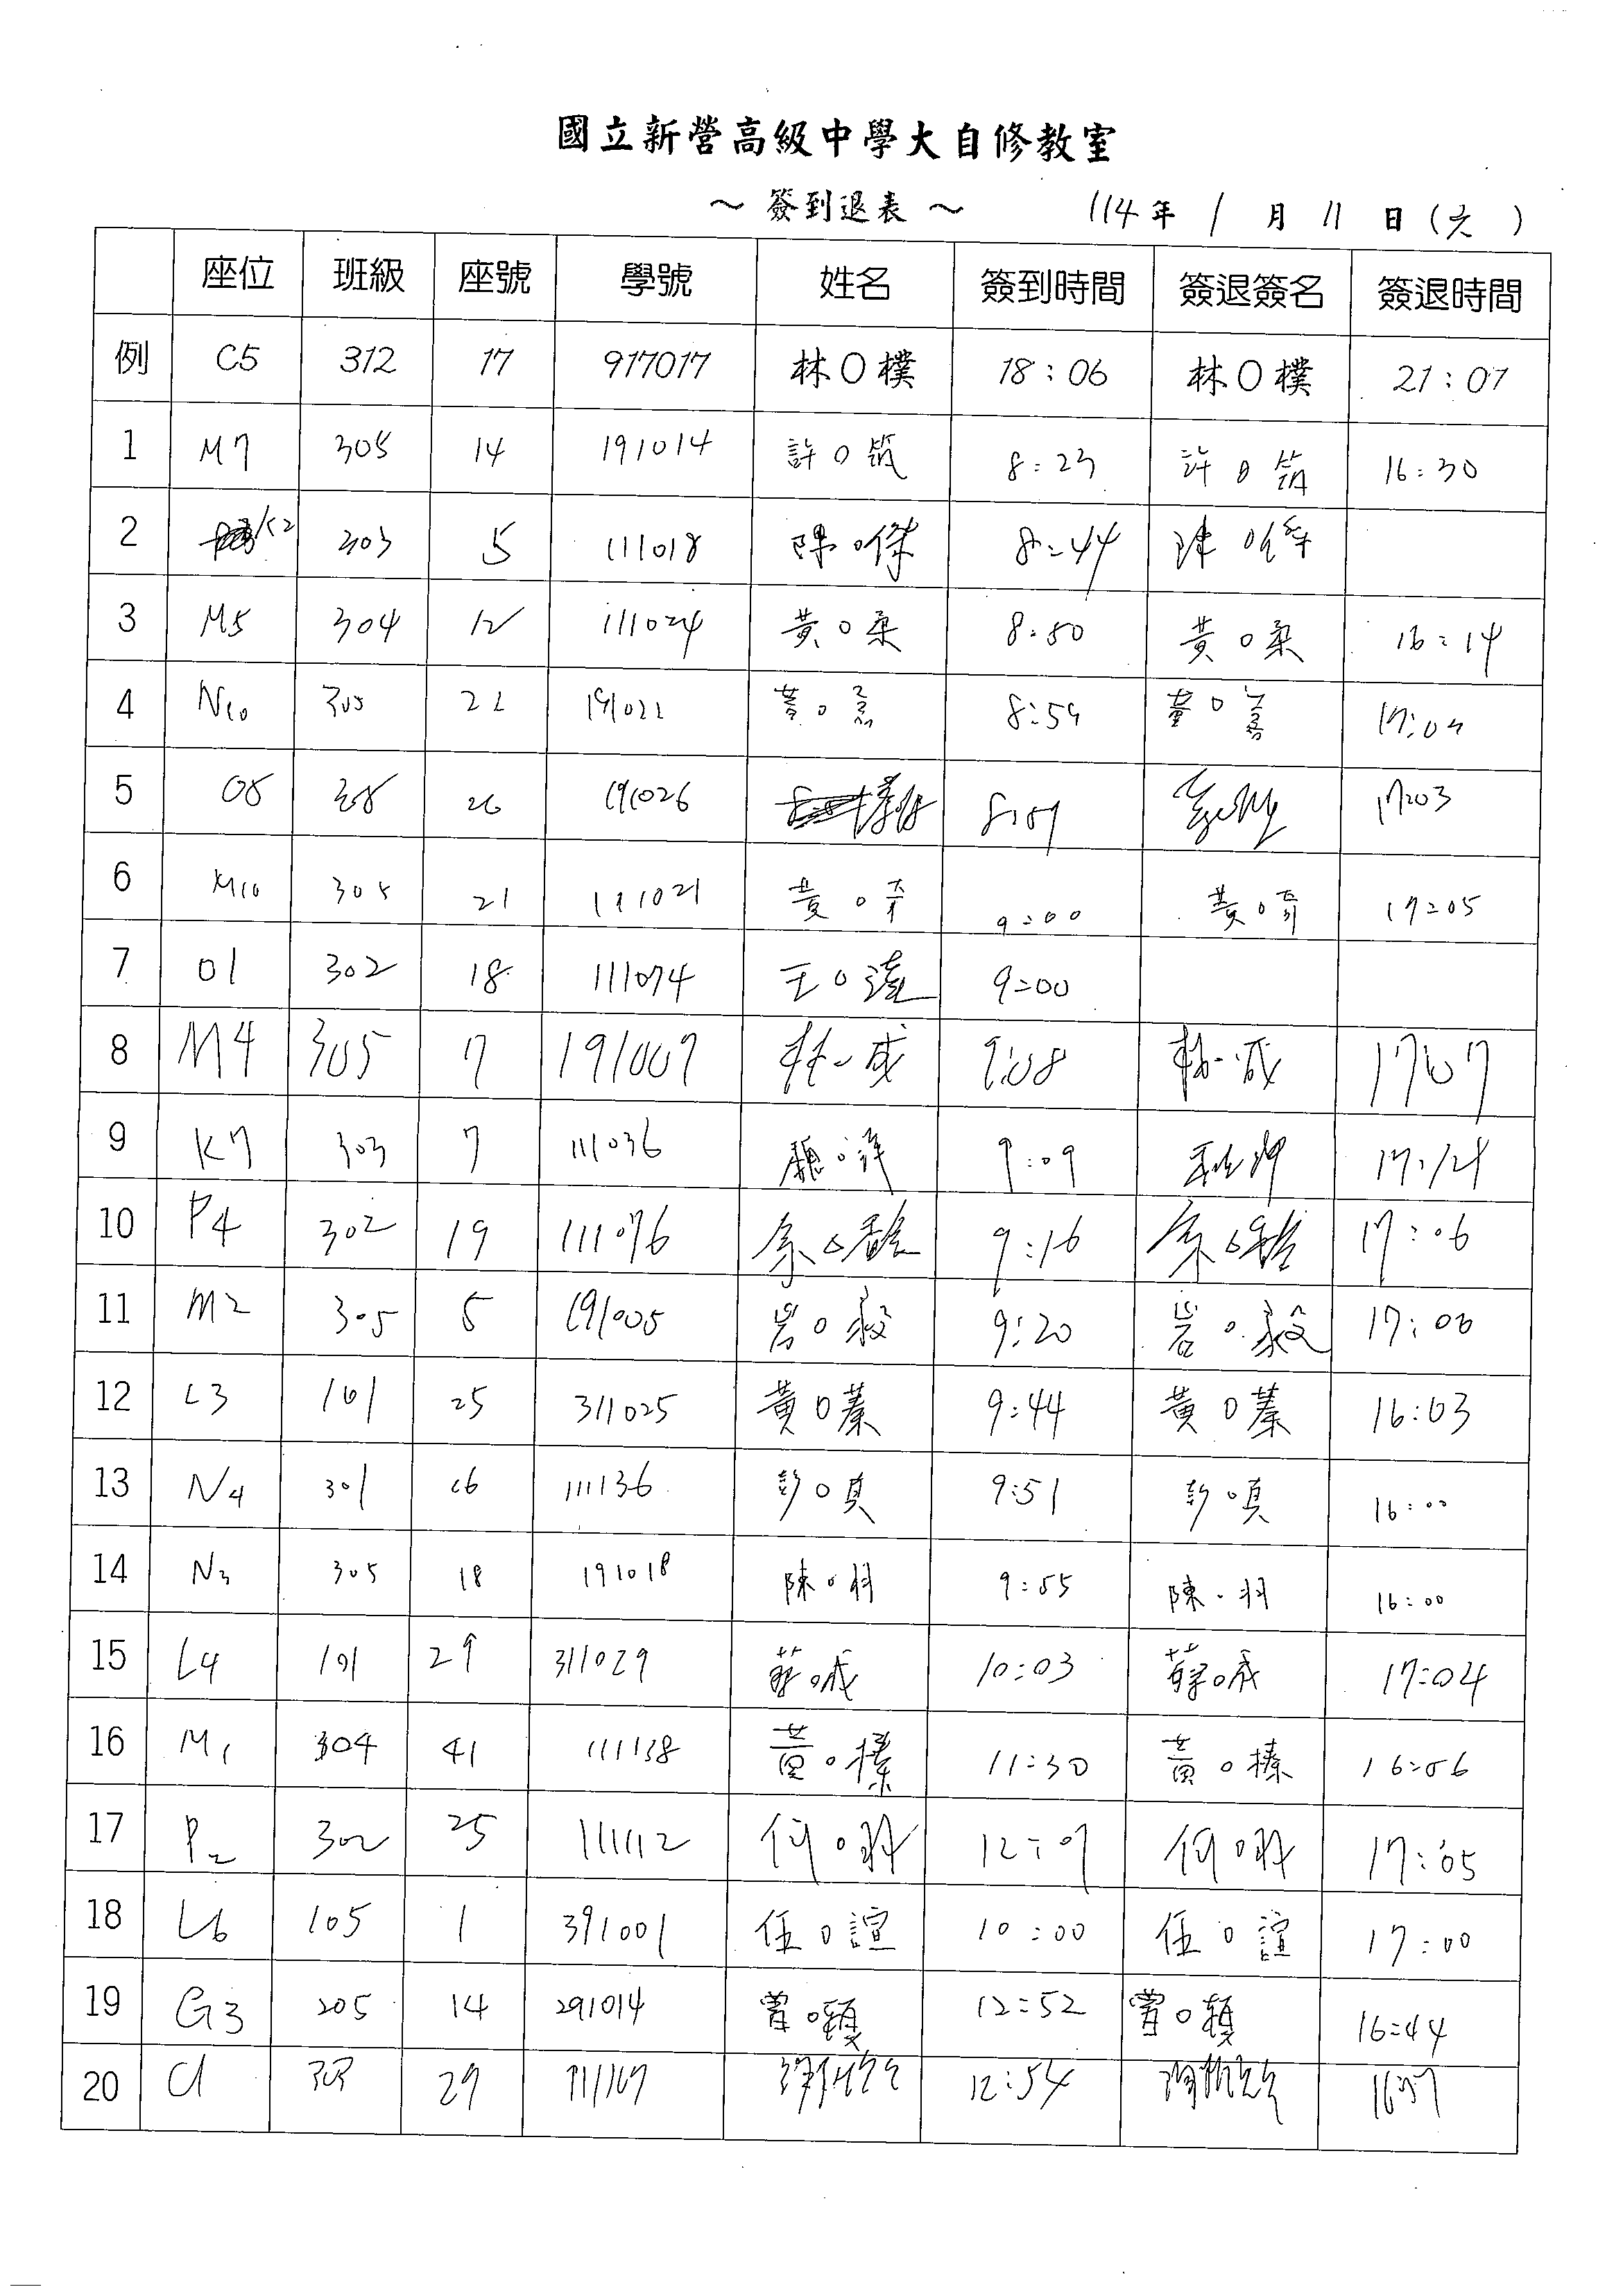 國立新營高級中學大自修教室
～簽到退表～ 114年 1月 11日(六)
座位 班級 座號 學號 姓名 簽到時間 簽退簽名 簽退時間
例 C5 312 17 917017 林O樸 18:06 林O樸 21:07
1 M7 305 14 191014 許O筑 8:23 許O筑 16:30
2 K2 303 5 111018 陳O傑 8:44 陳O傑
3 M5 304 12 111024 黃O柔 8:50 黃O柔 16:14
4 N10 305 22 191022 黃O 8:59 黃O 17:04
5 O8 26 191026 17:03
6 M10 305 21 191021 黃O 9:00 黃O 17:05
7 O1 302 18 111074 王O 9:00
8 M4 305 7 191007 林O成 9:08 林O成 17:07
9 K7 303 7 111036 魏O祥 9:09 17:14
10 P4 302 19 111076 9:16 17:06
11 M2 305 5 191005 岩O毅 9:20 岩O毅 17:06
12 L3 101 25 311025 黃O蓁 9:44 黃O蓁 16:03
13 N4 301 26 111136 彭O真 9:51 彭O真 16:00
14 N3 305 18 191018 陳O羽 9:55 陳O羽 16:00
15 L4 101 29 311029 蔡O成 10:03 17:04
16 M1 304 41 111138 黃O榛 11:30 黃O榛 16:56
17 P2 302 25 111112 何O羽 12:07 何O羽 17:05
18 L6 105 1 391001 任O諠 10:00 任O諠 17:00
19 G3 205 14 291014 曾O穎 12:52 曾O穎 16:44
20 29 12:54 16:57